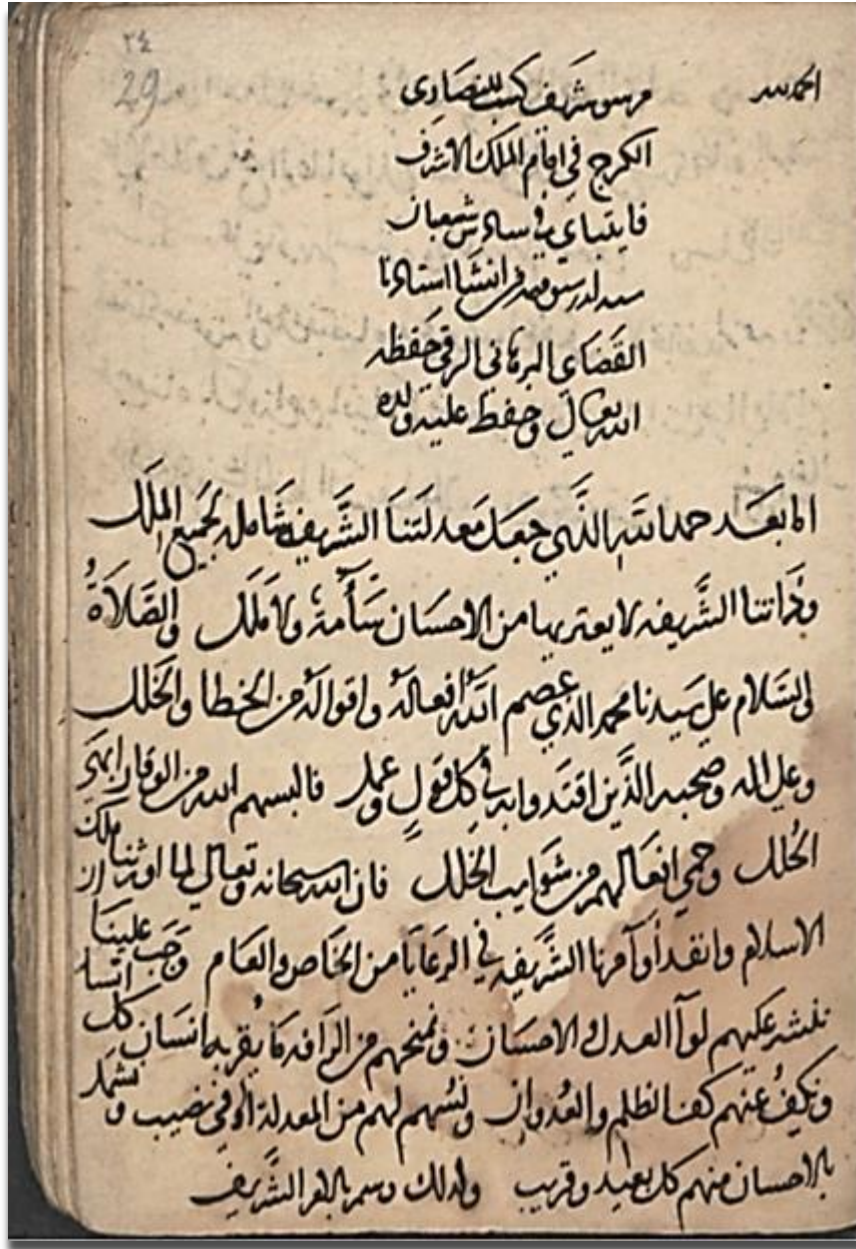 ٢٤
29
الحمد لله
مرسوم شريف كتب للنصارى
الكرج في ايام الملك الاشرف
قايتباي في سادس شعبان
انشا استاذنا
القضاى البرهانى الرقى حفظه
الله تعالى وحفظ عليه ولده
اما بعد حمد الله الذي جعل معدلتنا الشريفه شامله لجميع الملل
وذاتنا الشريفه لا يعتريها من الاحسان سآمة ولا ملل والصلاة
والسلام على سيدنا محمد الذي عصم الله افعاله واقواله من الخطا والخلل
وعلى اله وصحبه الذين اقتدوا به في كل قول وعمل فالبسهم الله من الوقار ابهى
الحلل وحمى افعالهم من شوايب الخلل فان الله سبحانه وتعالى لما اورثنا ملك
الاسلام وانفد اوآمرنا الشريفه في الرعايا من الخاص والعام وجب علينا ان
ننشر عليهم لوآ العدل والاحسان ونمنحهم من الرافه ما يقر به انسان كل انسان
ونكف عنهم كف الظلم والعدوان ونسهم لهم من المعدلة اوفى نصيب ونشمل
بالاحسان منهم كل بعيد وقريب ولذلك رسم بالامر الشريف